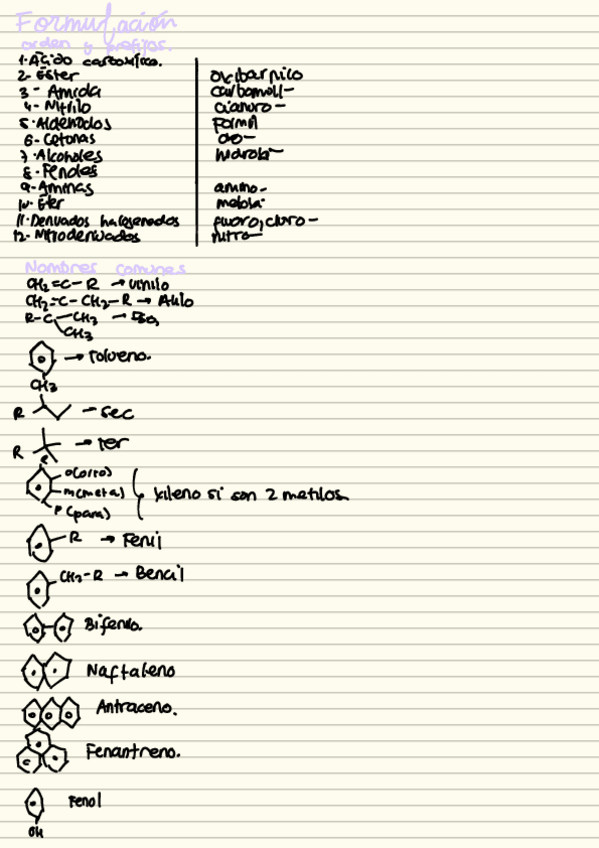 Formulación
orden y prefijos.
1. Ácido carboxílico.
2- Ester oxicarbonico
3- Amida carbamoil-
4- Nitrilo cianuro-
5. Aldehidos Formil
6- Cetonas oxo-
7- Alcoholes hidroxi-
8- Fenoles
9- Aminas amino-
10- Eter metoxi-
11- Derivados halogenados fluoro, cloro-
12- Nitroderivados nitro-
Nombres comunes
CH2=C-R → vinilo
CH2=C-CH2-R → Alilo
R-C-CH3 → Iso,
CH3
→ tolueno.
CH3
R → sec
R → ter
R
o(orto)
m(meta) xileno si son 2 metilos
P (para)
R → Fenil
CH2-R → Bencil
Bifenilo.
Naftaleno
Antraceno.
Fenantreno.
Fenol
OH